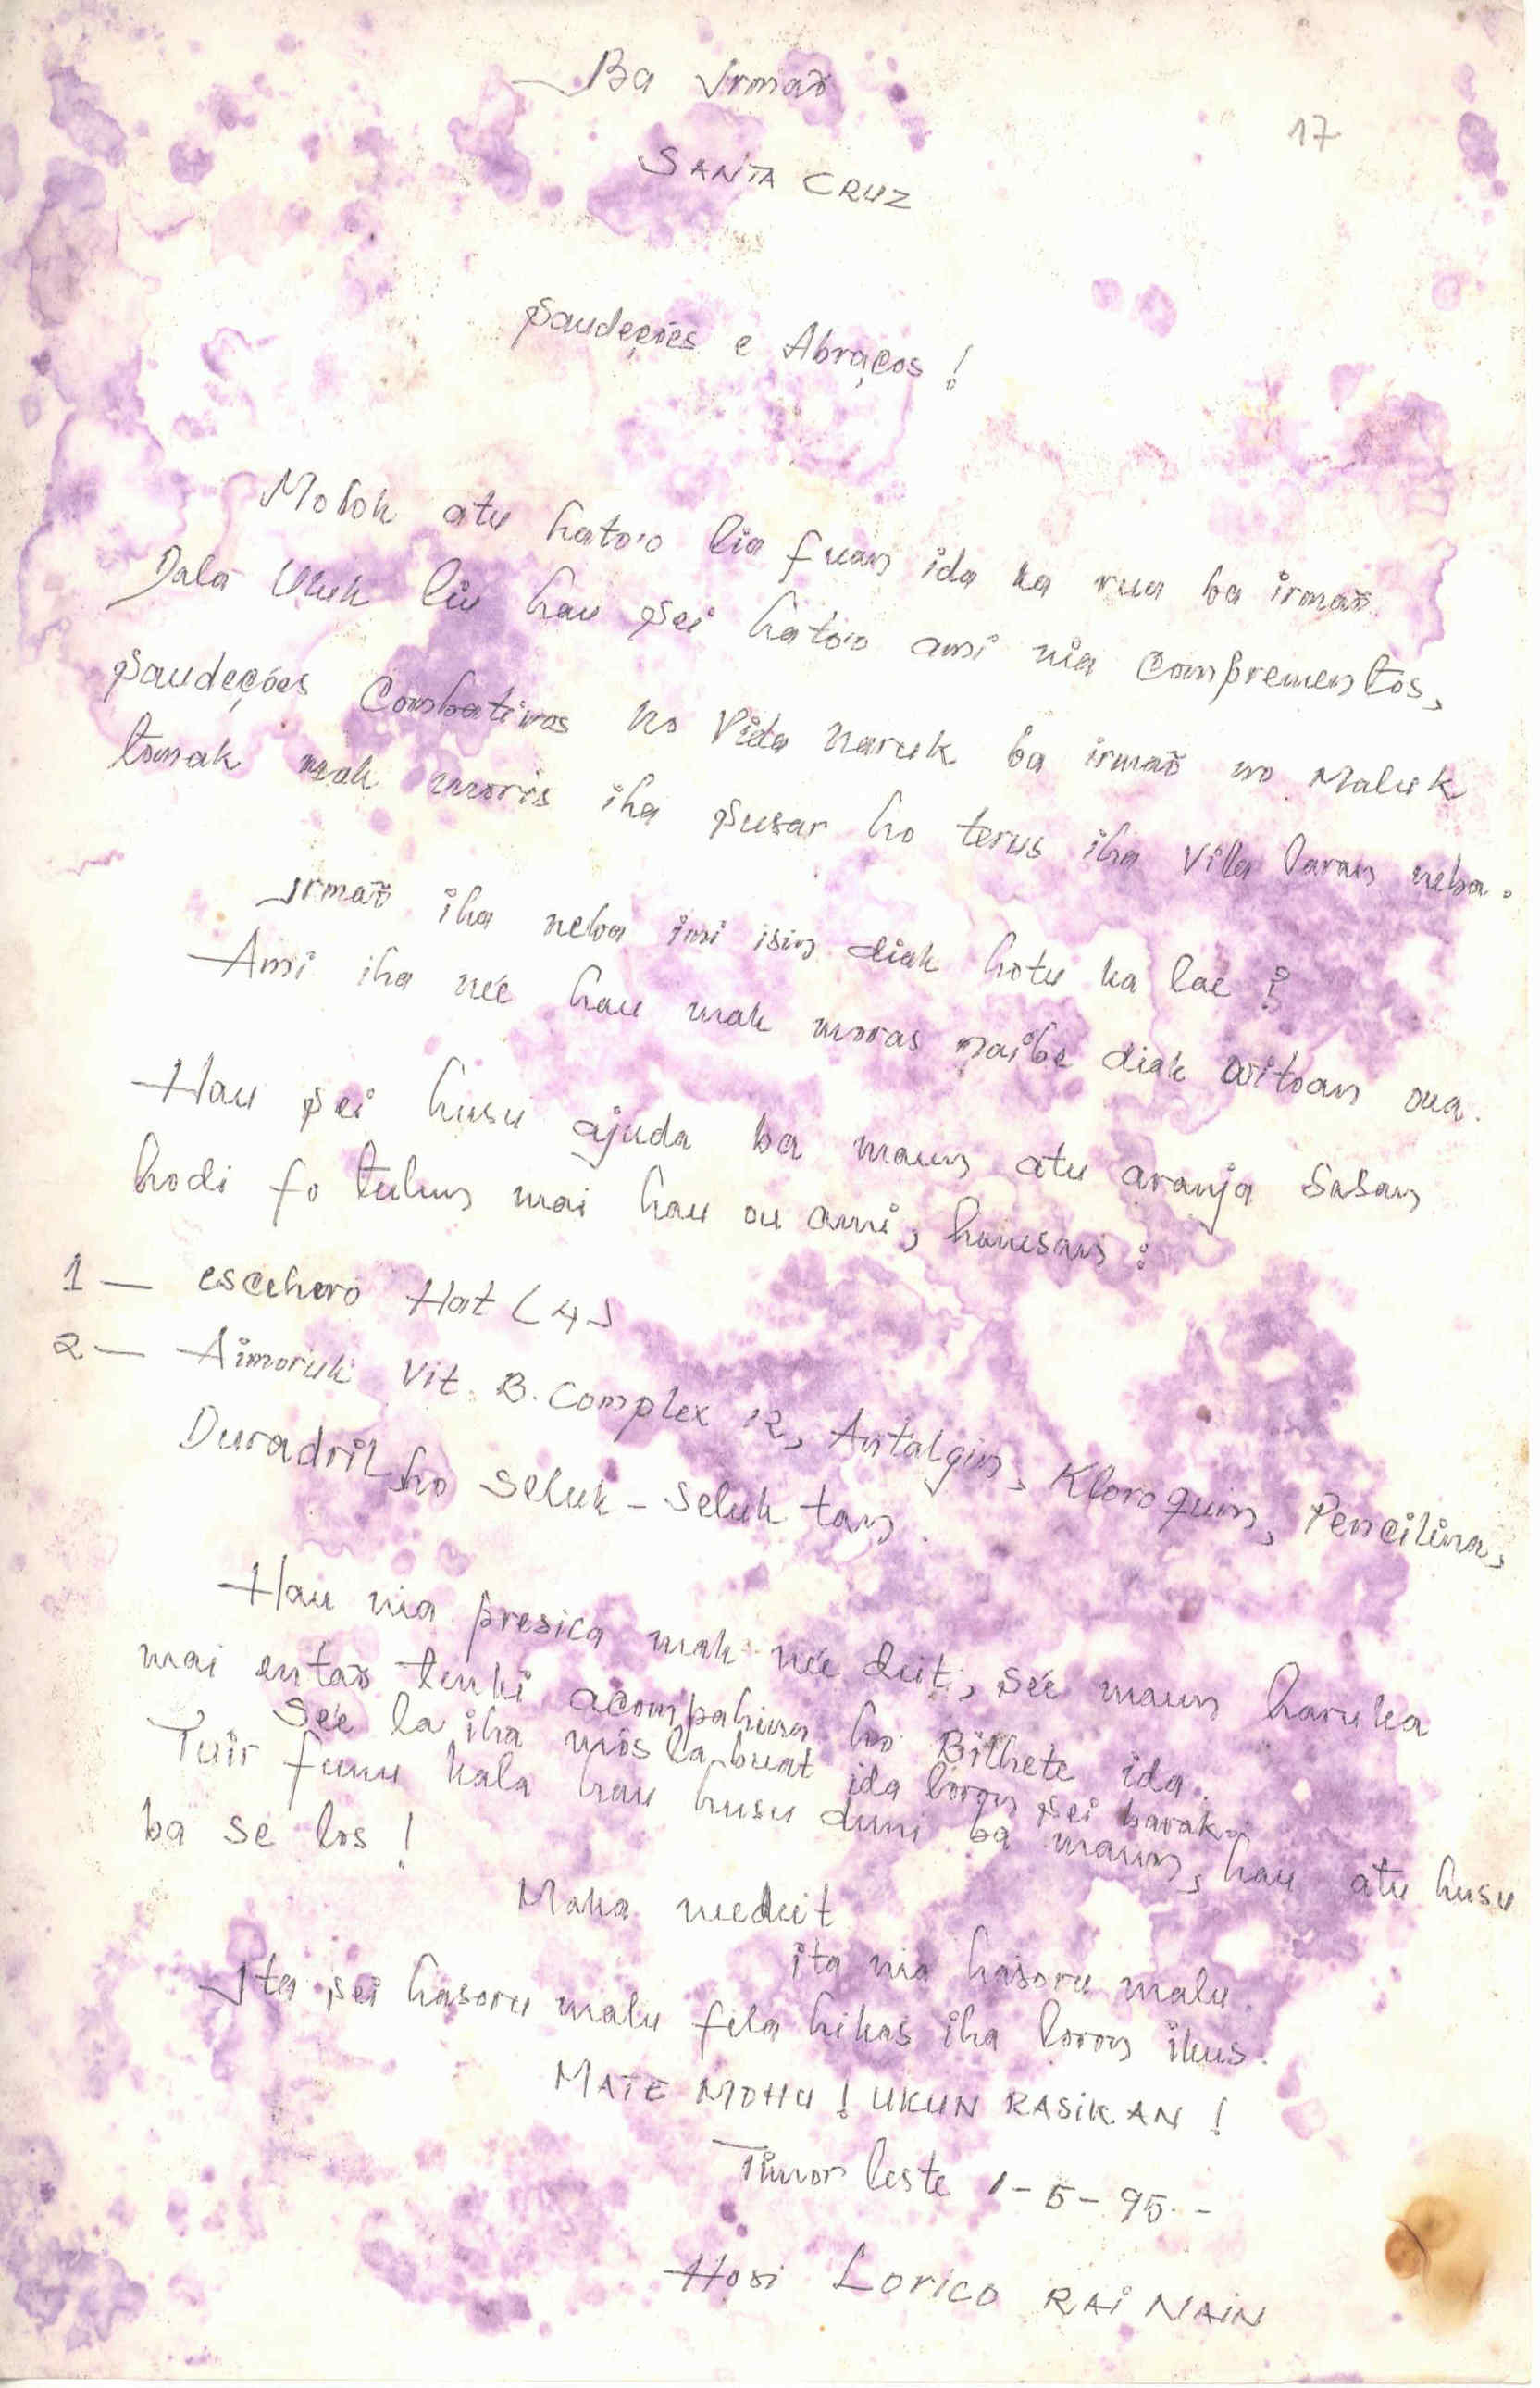 Ba Irmaõ
17
SANTA CRUZ
Saudeções e Abraços !
Molok atu hato'o lia fuan ida ka rua ba irmaõ
Dala Uluk liu hau sei hato'o ami nia comprementos,
Saudeções Combativos no Vida naruk ba irmaõ no Maluk
tomak mak moris iha susar ho terus iha Villa laran neba.
Irmaõ iha neba imi isin diak hotu ka lae ?
Ami iha né'e hau mak moras maibe diak oitoan ona.
Hau sei husu ajuda ba maun atu aranja sasan
hodi fo tulun mai hau ou ami, hanesan :
1 — escehero Hat (4)
2 — Aimoruk Vit. B. Complex 12, Antalgin, Kloroquin, Pencilina,
Duradril ho seluk-seluk tan.
Hau nia presica mak né'e deit, sé'e maun haruka
mai entaõ tenki acompahina ho Bilhete ida.
Sé'e la iha mós la buat ida loron sei barak.
Tuir funu kala hau husu duni ba maun, hau atu husu
ba se los !
Maka needeit
ita nia hasoru malu.
Ita sei hasoru malu fila hikas iha loron ikus.
MATE MOHU ! UKUN RASIKAN !
Timor leste 1-5-95.-
Hosi Lorico RAI NAIN